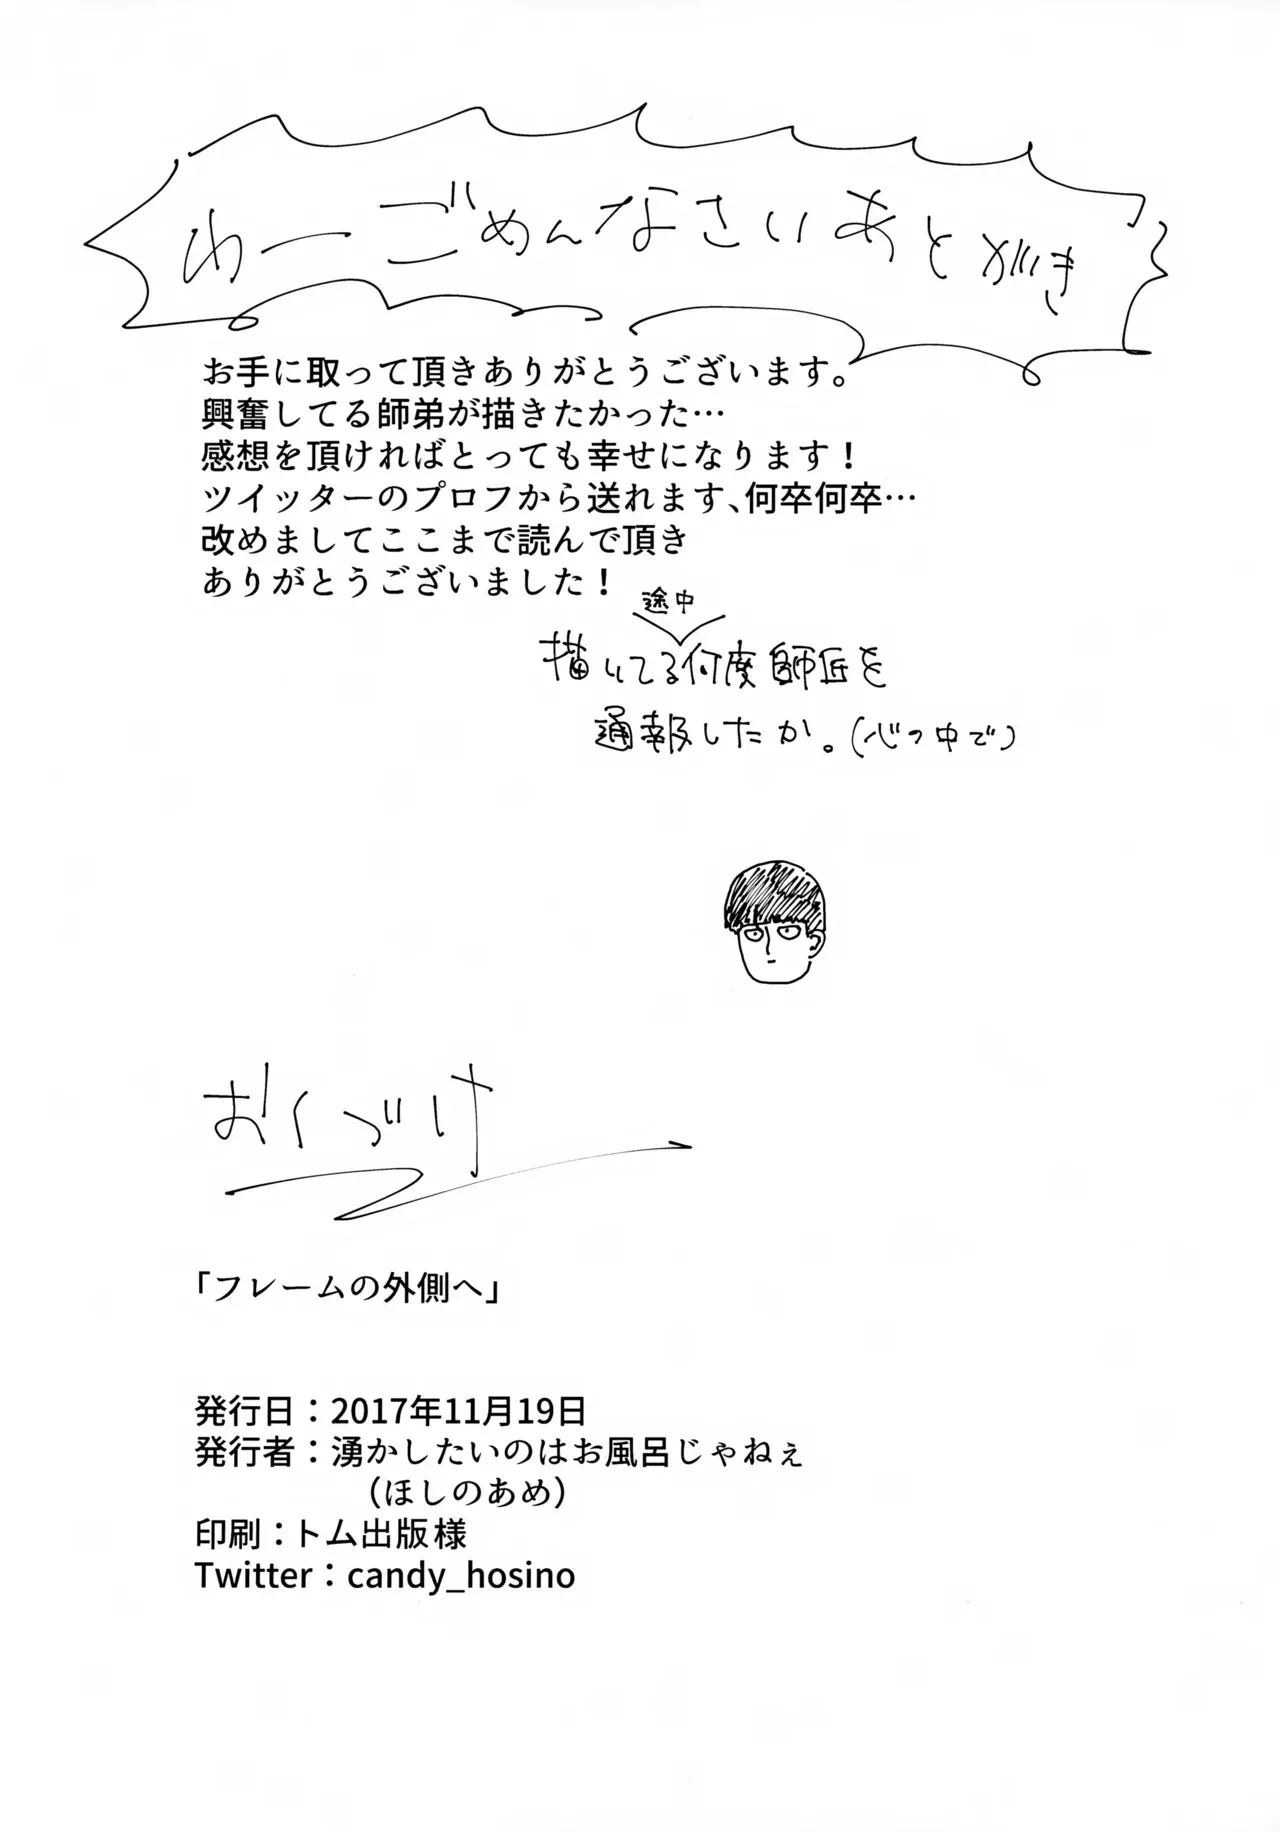 わーごめんなさいあとがき
お手に取って頂きありがとうございます。
興奮してる師弟が描きたかった…
感想を頂ければとっても幸せになります！
ツイッターのプロフから送れます、何卒何卒…
改めましてここまで読んで頂き
ありがとうございました！
途中
描いてる何度師匠を
通報したか。(心の中で)
おくづけ
「フレームの外側へ」
発行日：2017年11月19日
発行者：湧かしたいのはお風呂じゃねぇ
（ほしのあめ）
印刷：トム出版様
Twitter：candy_hosino